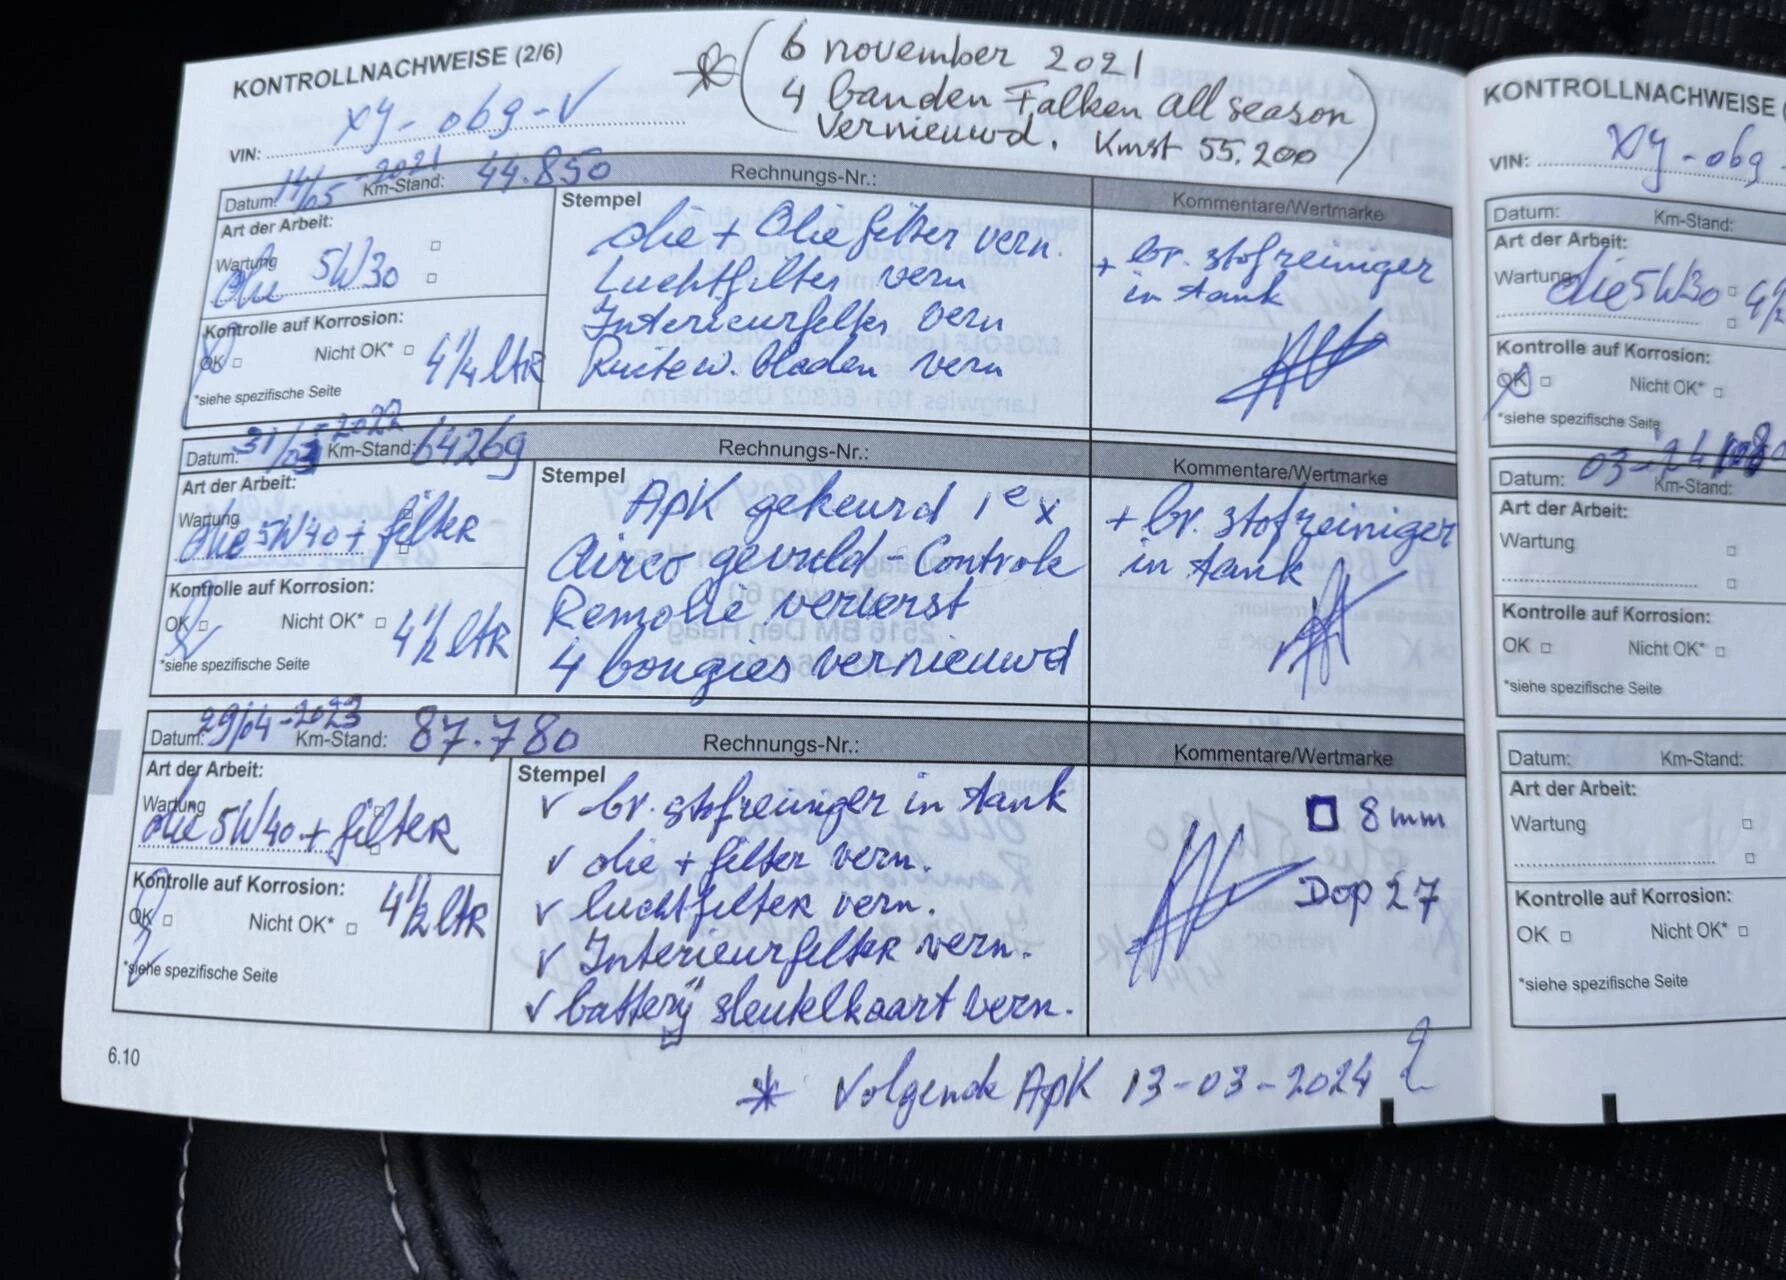 KONTROLLNACHWEISE (2/6)
* ( 6 november 2021
4 banden Falken all season
vernieuwd. Kmst 55.200 )
VIN: XY-obg-V
Datum: 14/05-2021 Km-Stand: 44.850 Rechnungs-Nr.:
Art der Arbeit:
Wartung
Olie 5W30
Kontrolle auf Korrosion:
OK Nicht OK* 4 1/4 ltR
*siehe spezifische Seite
Stempel
olie + Olie filter vern.
Luchtfilter vern
Interieurfilter vern
Ruitew. bladen vern
Kommentare/Wertmarke
+ br. stofreiniger
in tank
Datum: 31/03 2022 Km-Stand: 64269 Rechnungs-Nr.:
Art der Arbeit:
Wartung
Olie 5W40 + filter
Kontrolle auf Korrosion:
OK Nicht OK* 4 1/2 ltR
*siehe spezifische Seite
Stempel
ApK gekeurd 1e x
Airco gevuld - Controle
Remolie ververst
4 bougies vernieuwd
Kommentare/Wertmarke
+ br. stofreiniger
in tank
Datum: 29/04-2023 Km-Stand: 87.780 Rechnungs-Nr.:
Art der Arbeit:
Wartung
olie 5W40 + filter
Kontrolle auf Korrosion:
OK Nicht OK* 4 1/2 ltR
*siehe spezifische Seite
Stempel
✓ br. stofreiniger in tank
✓ olie + filter vern.
✓ luchtfilter vern.
✓ Interieurfilter vern.
✓ battery sleutelkaart vern.
Kommentare/Wertmarke
□ 8 mm
Dop 27
6.10
* Volgende ApK 13-03-2024
KONTROLLNACHWEISE
VIN: XY-obg
Datum: Km-Stand:
Art der Arbeit:
Wartung
olie 5W30
Kontrolle auf Korrosion:
OK Nicht OK*
*siehe spezifische Seite
Datum: 03-24 Km-Stand:
Art der Arbeit:
Wartung
Kontrolle auf Korrosion:
OK Nicht OK*
*siehe spezifische Seite
Datum: Km-Stand:
Art der Arbeit:
Wartung
Kontrolle auf Korrosion:
OK Nicht OK*
*siehe spezifische Seite